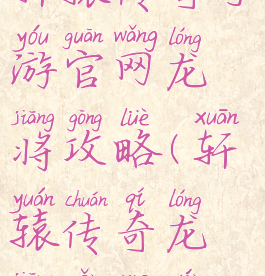 yóu guān wǎng lóng
游官网龙
jiāng gōng lüè xuān
将攻略(轩
yuán chuán qí lóng
辕传奇龙